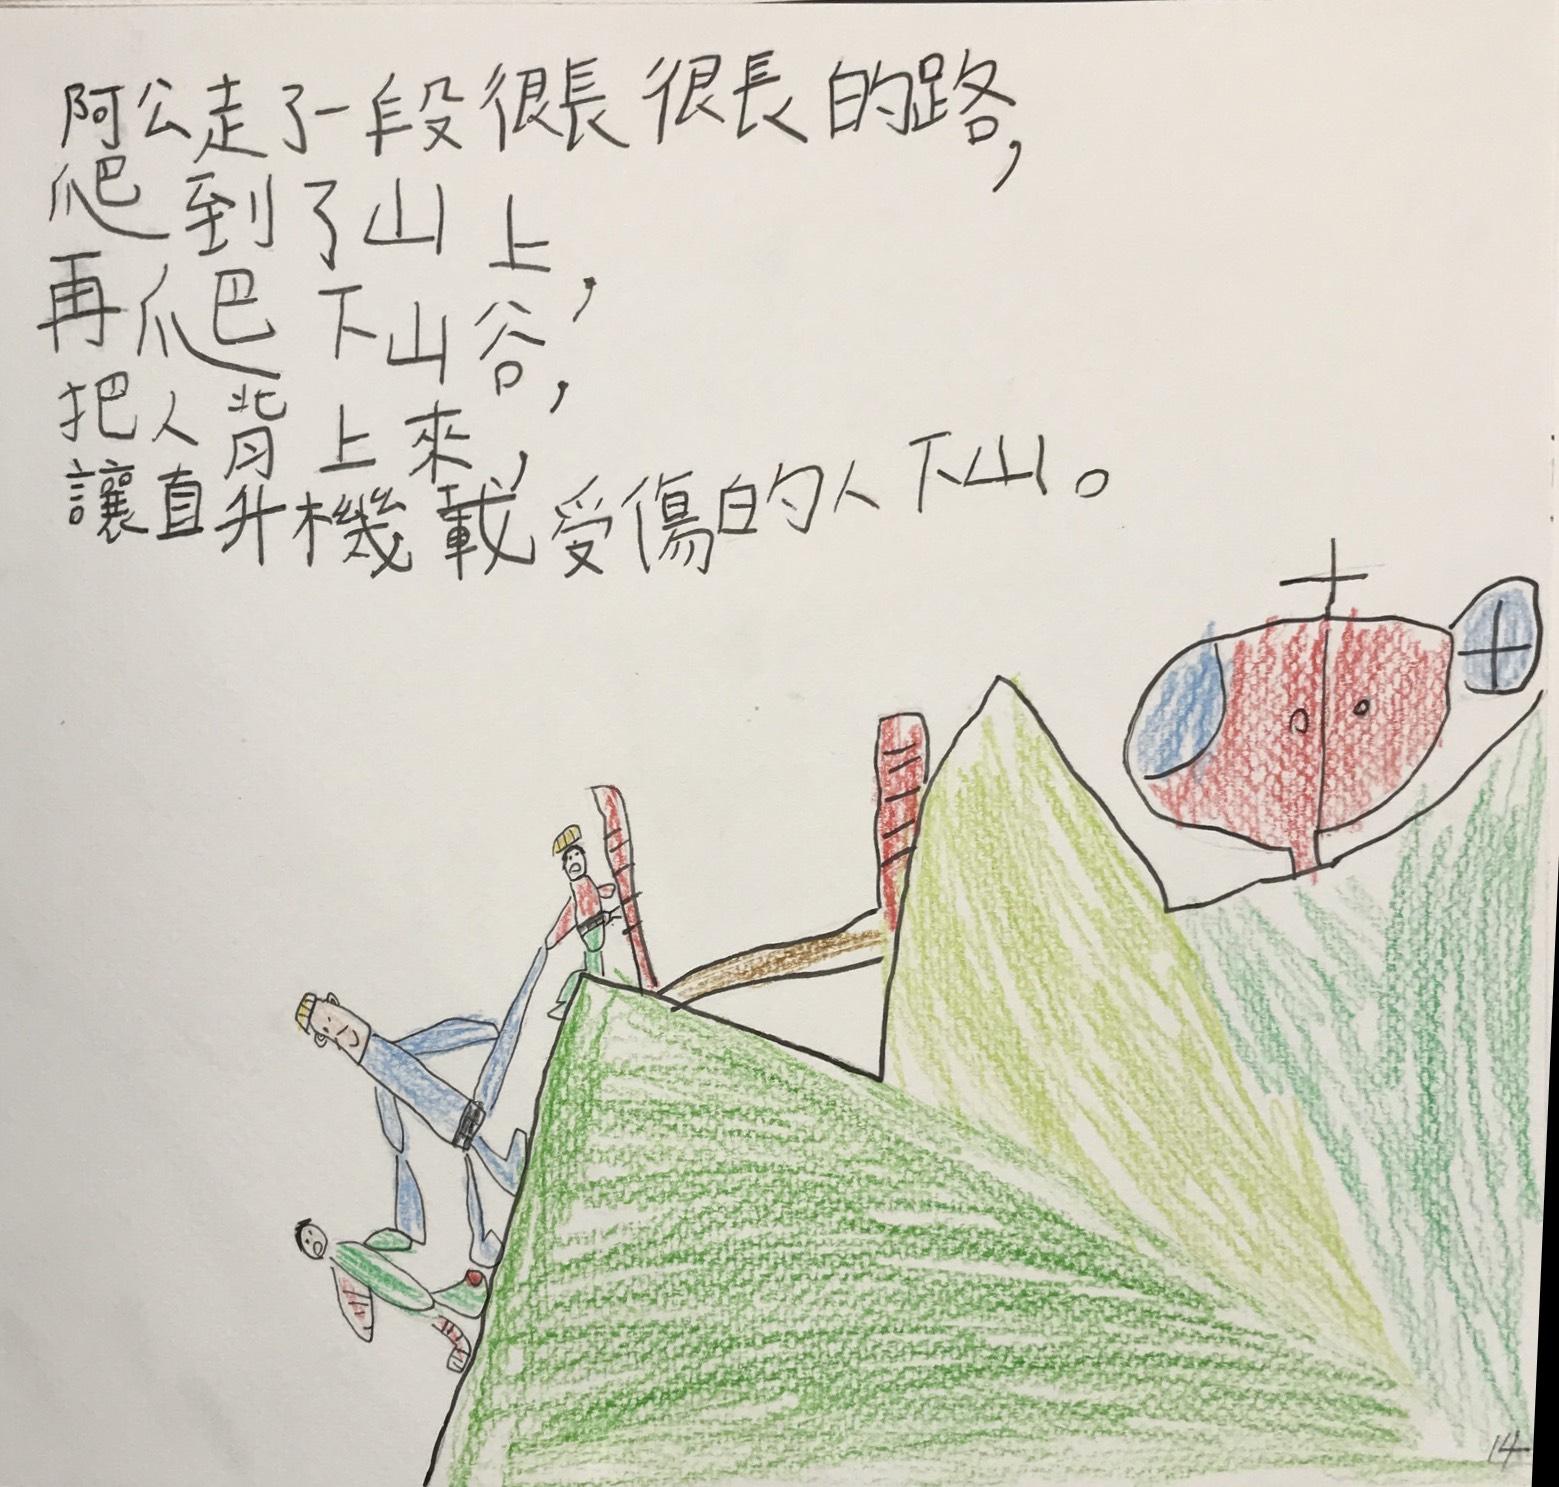 阿公走了一段很長很長的路，
爬到了山上，
再爬下山谷，
把人背上來，
讓直升機載受傷的人下山。
14